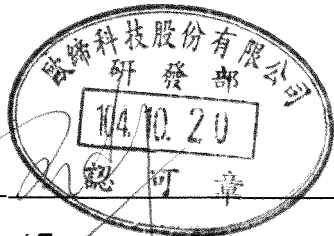 歐締科技股份有限公司
研發部
104.10.20
認可章